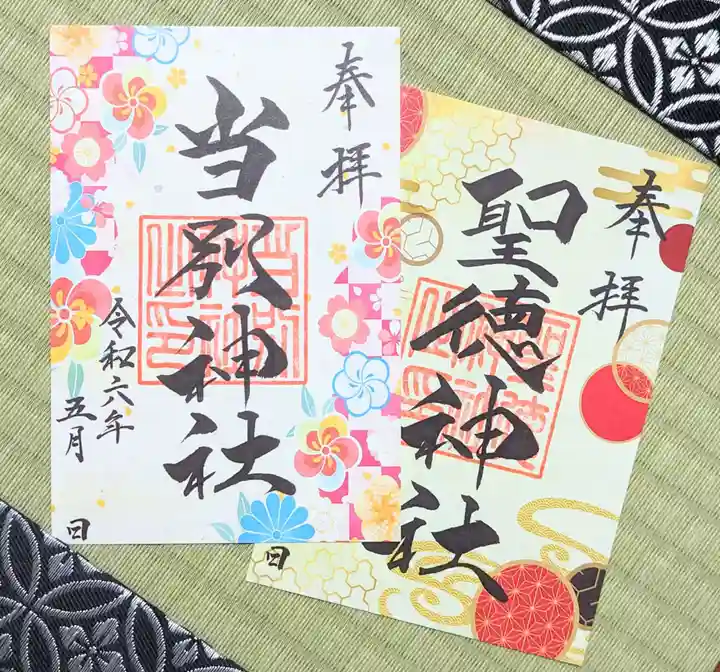 奉拝
当別神社
令和六年
五月
日
奉拝
聖徳神社
日